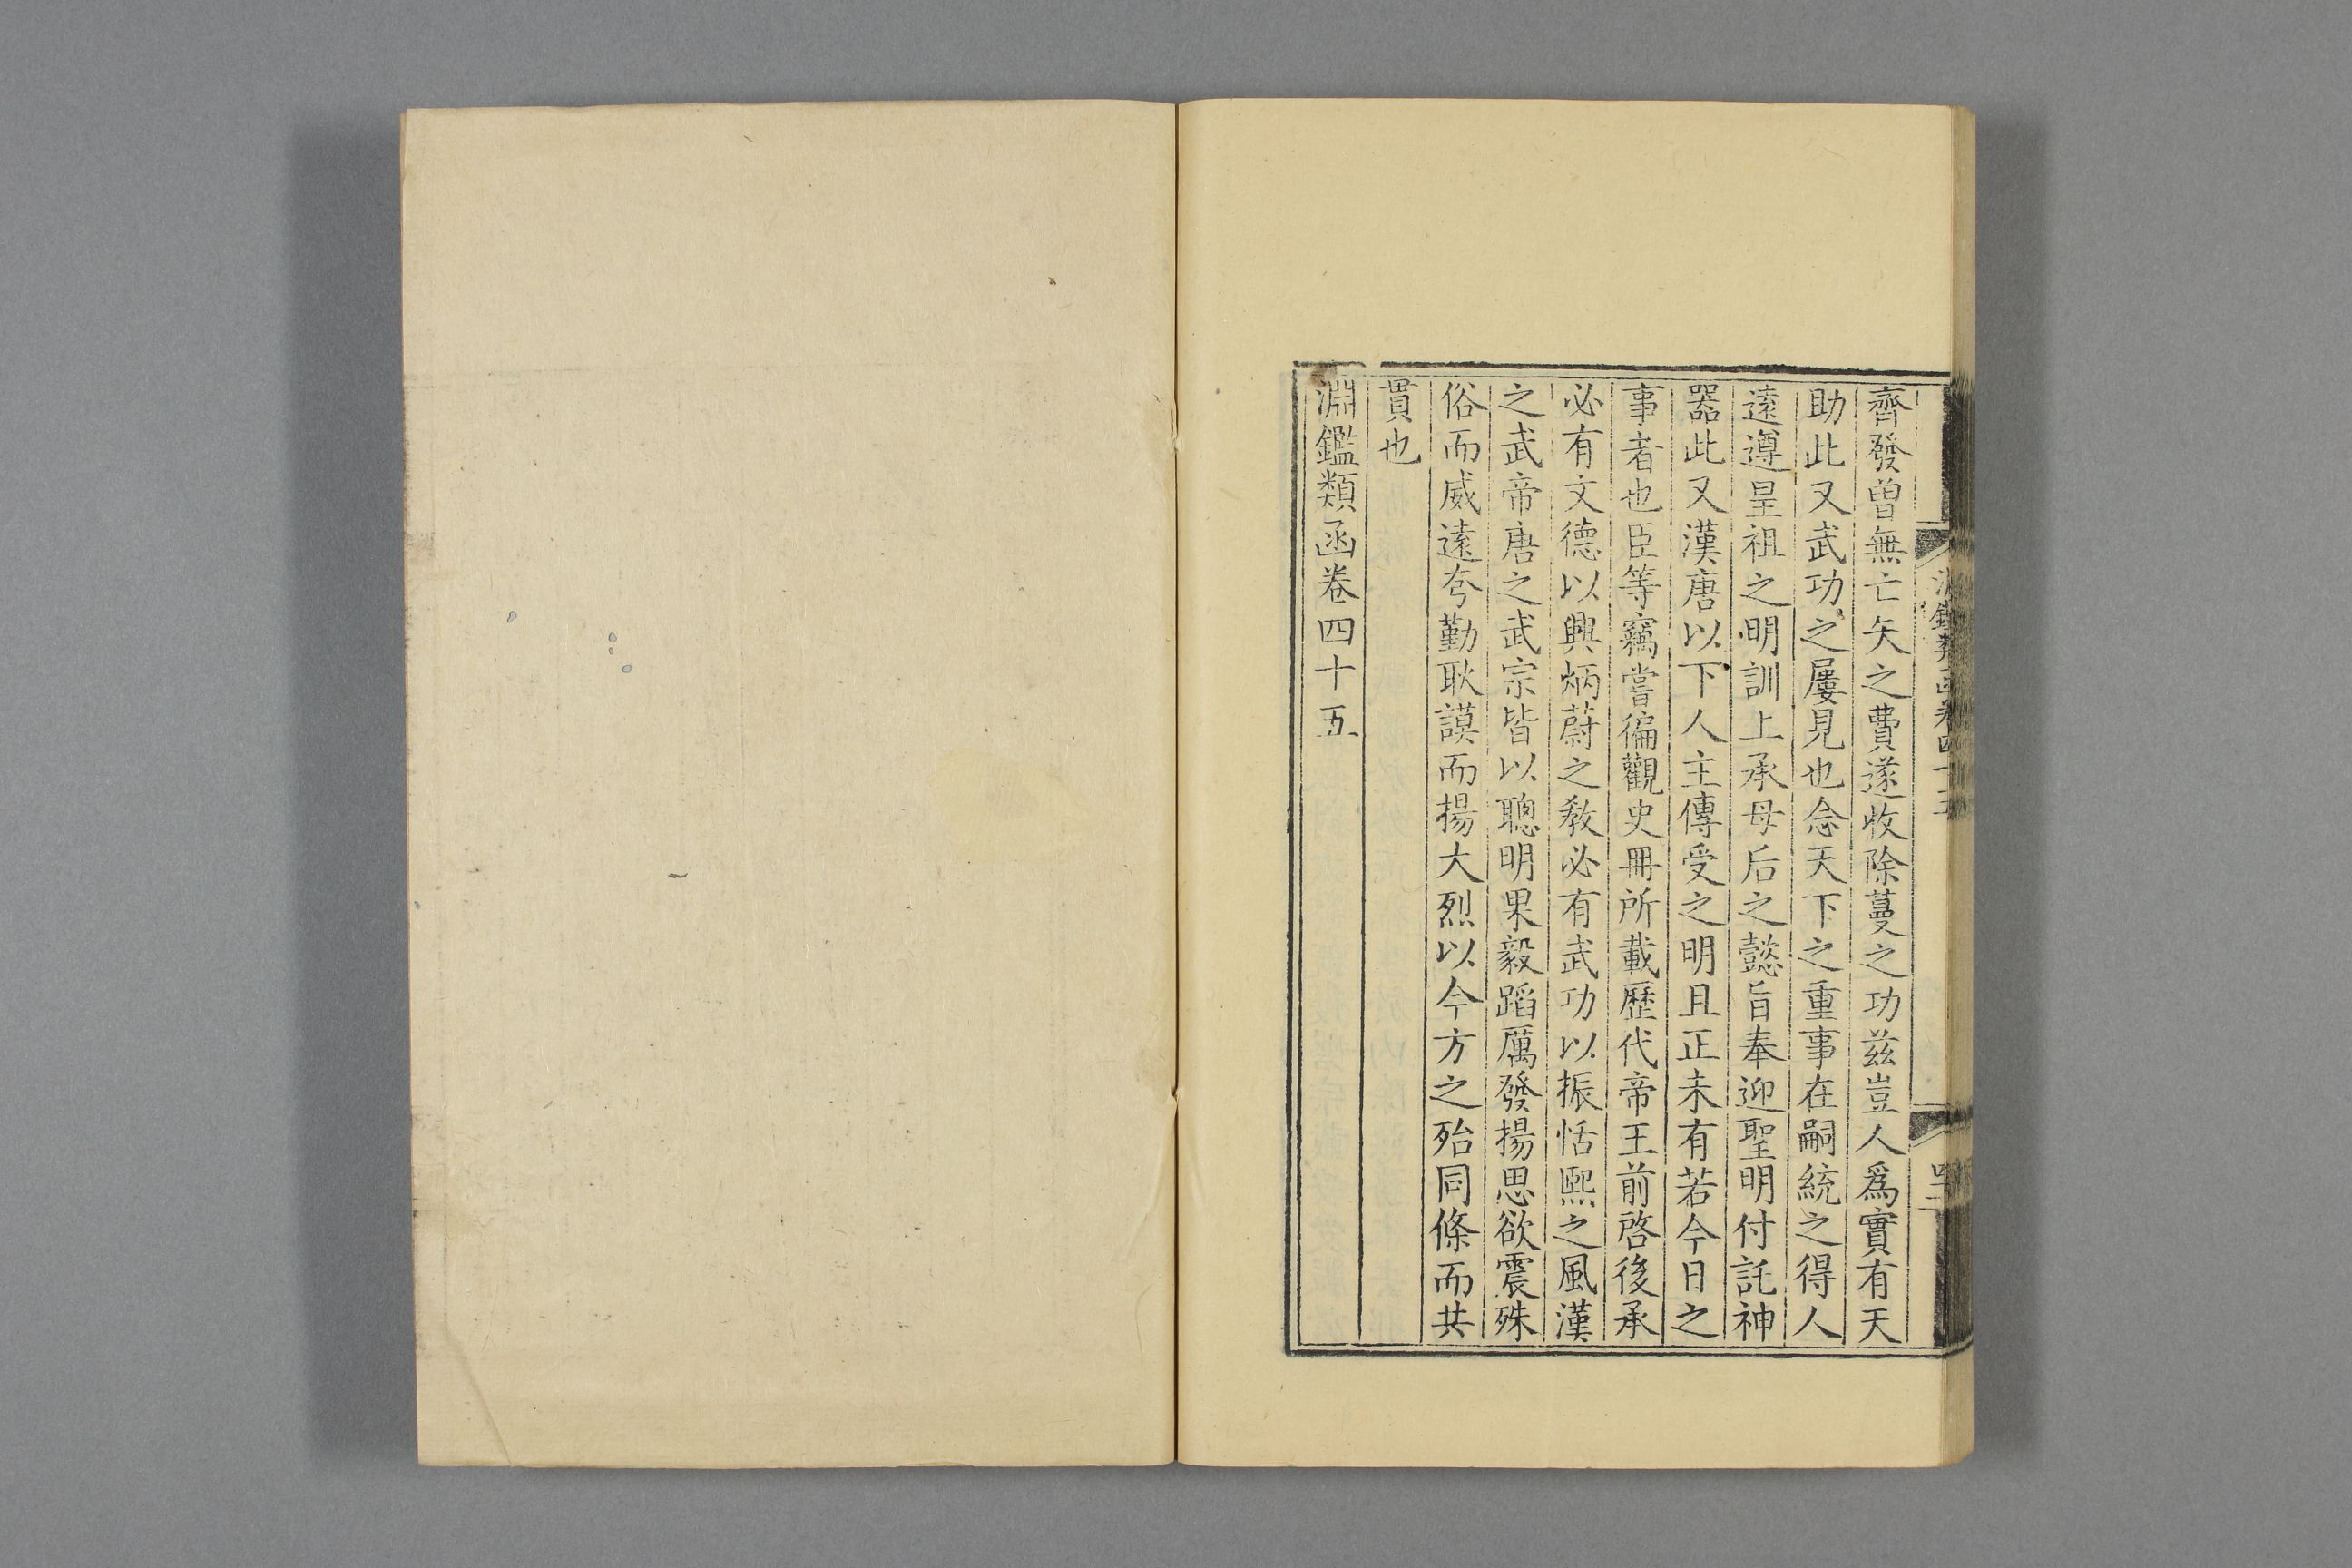 淵鑑類函卷四十五
四十二
齊發曾無亡矢之費遂收除蔓之功茲豈人爲實有天
助此又武功之屢見也念天下之重事在嗣統之得人
遠遵皇祖之明訓上承母后之懿旨奉迎聖明付託神
器此又漢唐以下人主傳受之明且正未有若今日之
事者也臣等竊嘗徧觀史冊所載歷代帝王前啓後承
必有文德以興炳蔚之敎必有武功以振恬熙之風漢
之武帝唐之武宗皆以聰明果毅蹈厲發揚思欲震殊
俗而威遠夸勤耿謨而揚大烈以今方之殆同條而共
貫也
淵鑑類函卷四十五